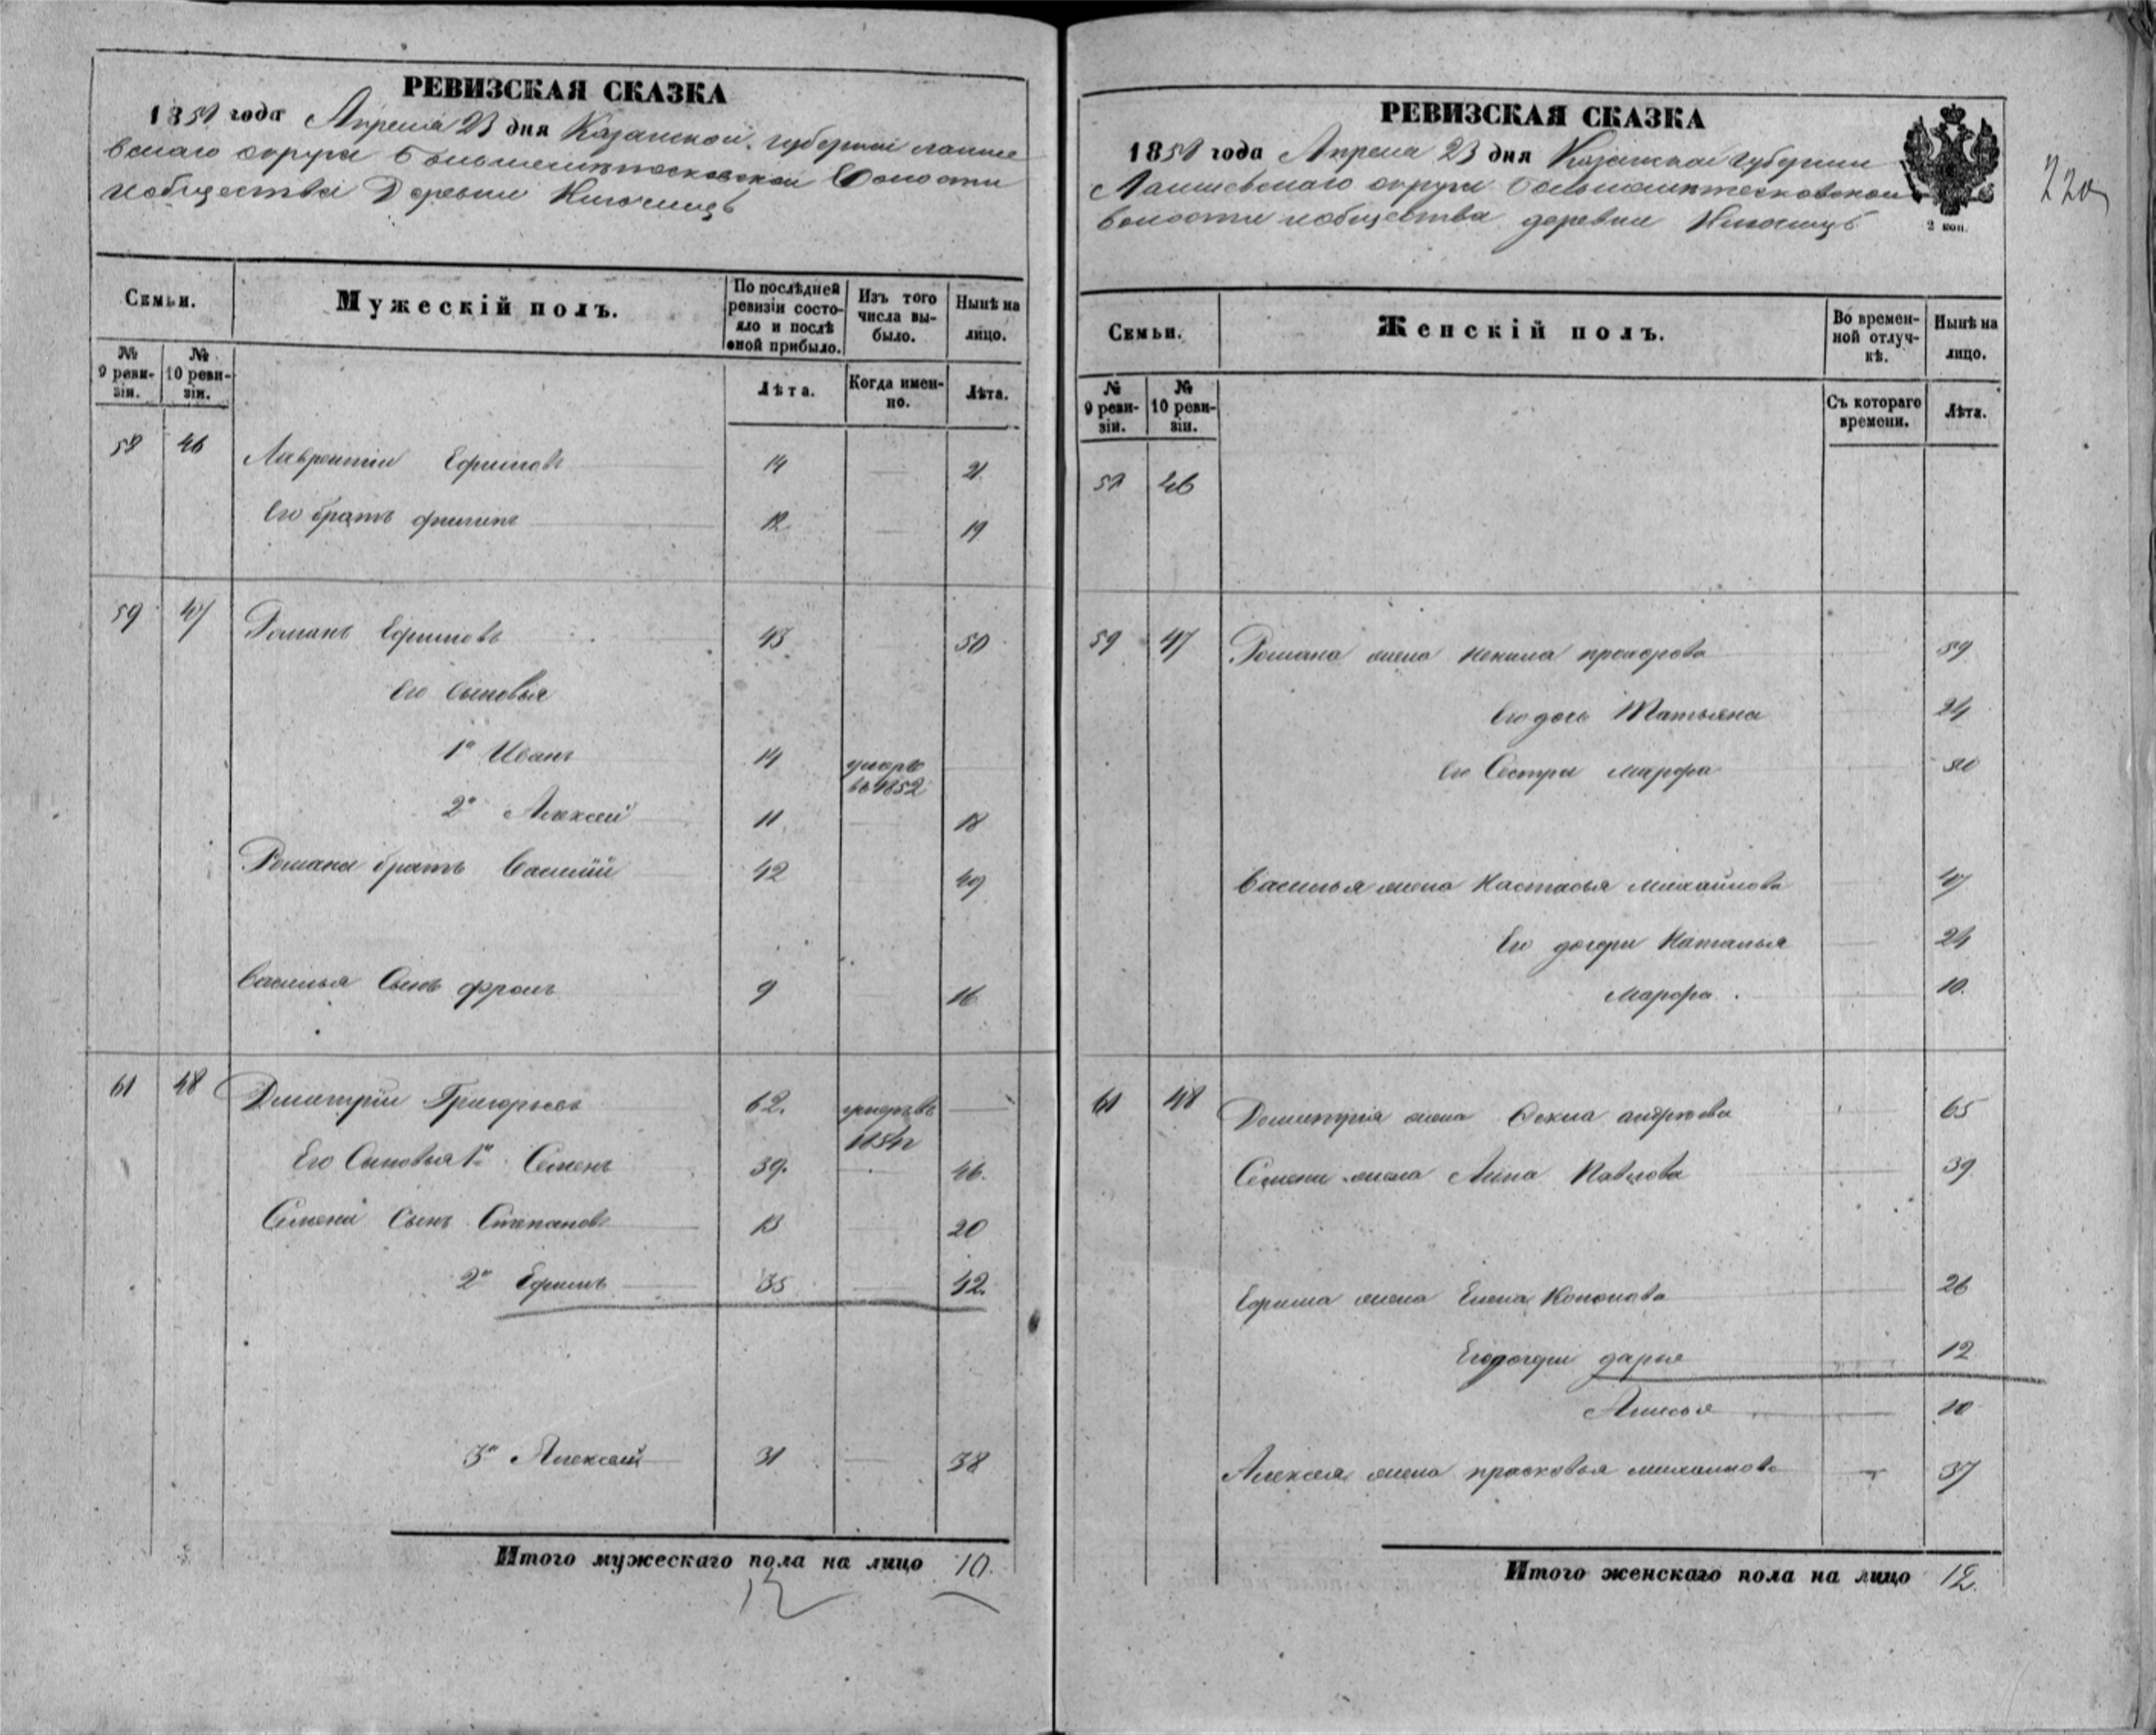 РЕВИЗСКАЯ СКАЗКА
1858 года Апреля 23 дня Казанской губерніи лаише
вскаго округа волости
иобщества Деревни
Семьи.
Мужескій полъ.
По послѣдней ревизіи состояло и послѣ оной прибыло.
Изъ того числа выбыло.
Нынѣ на лицо.
№ 9 ревизіи.
№ 10 ревизіи.
Лѣта.
Когда именно.
Лѣта.
58 46 Лаврентіи Ефимовъ 14 21
Его братъ филипъ 12 19
59 47 Романъ Ефимовъ 43 50
Его Сыновья
1й Иванъ 14 умеръ
въ 1852
2й Алексей 11 18
Романа братъ Василій 42 49
Василья Сынъ фролъ 9 16
61 48 Дмитріи Григорьевъ 62. умеръ въ
1854
Его Сыновья 1й Семенъ 39. 46.
Семена Сынъ Степанъ 13 20
2й Ефимъ 35 42.
3й Алексей 31 38
Итого мужескаго пола на лицо 10.
12
РЕВИЗСКАЯ СКАЗКА
1858 года Апреля 23 дня Казанской губерніи
Лаишевскаго округа
волости иобщества деревни
2 коп.
220
Семьи.
Женскій полъ.
Во временной отлучкѣ.
Нынѣ на лицо.
№ 9 ревизіи.
№ 10 ревизіи.
Съ котораго времени.
Лѣта.
58 46
59 47 Романа жена прохорова 59
Его дочь Татьяна 24
Его Сестра марфа 50
Василья жена Настасья михайлова 47
Его дочери Наталья 24
Марфа. 10.
61 48 Дмитрія жена андреева 65
Семена жена Анна Павлова 39
Ефима жена Елена Кононова 26
Егодочери дарья 12
Анисья 10
Алексея жена прасковья михаилова 37
Итого женскаго пола на лицо 12.